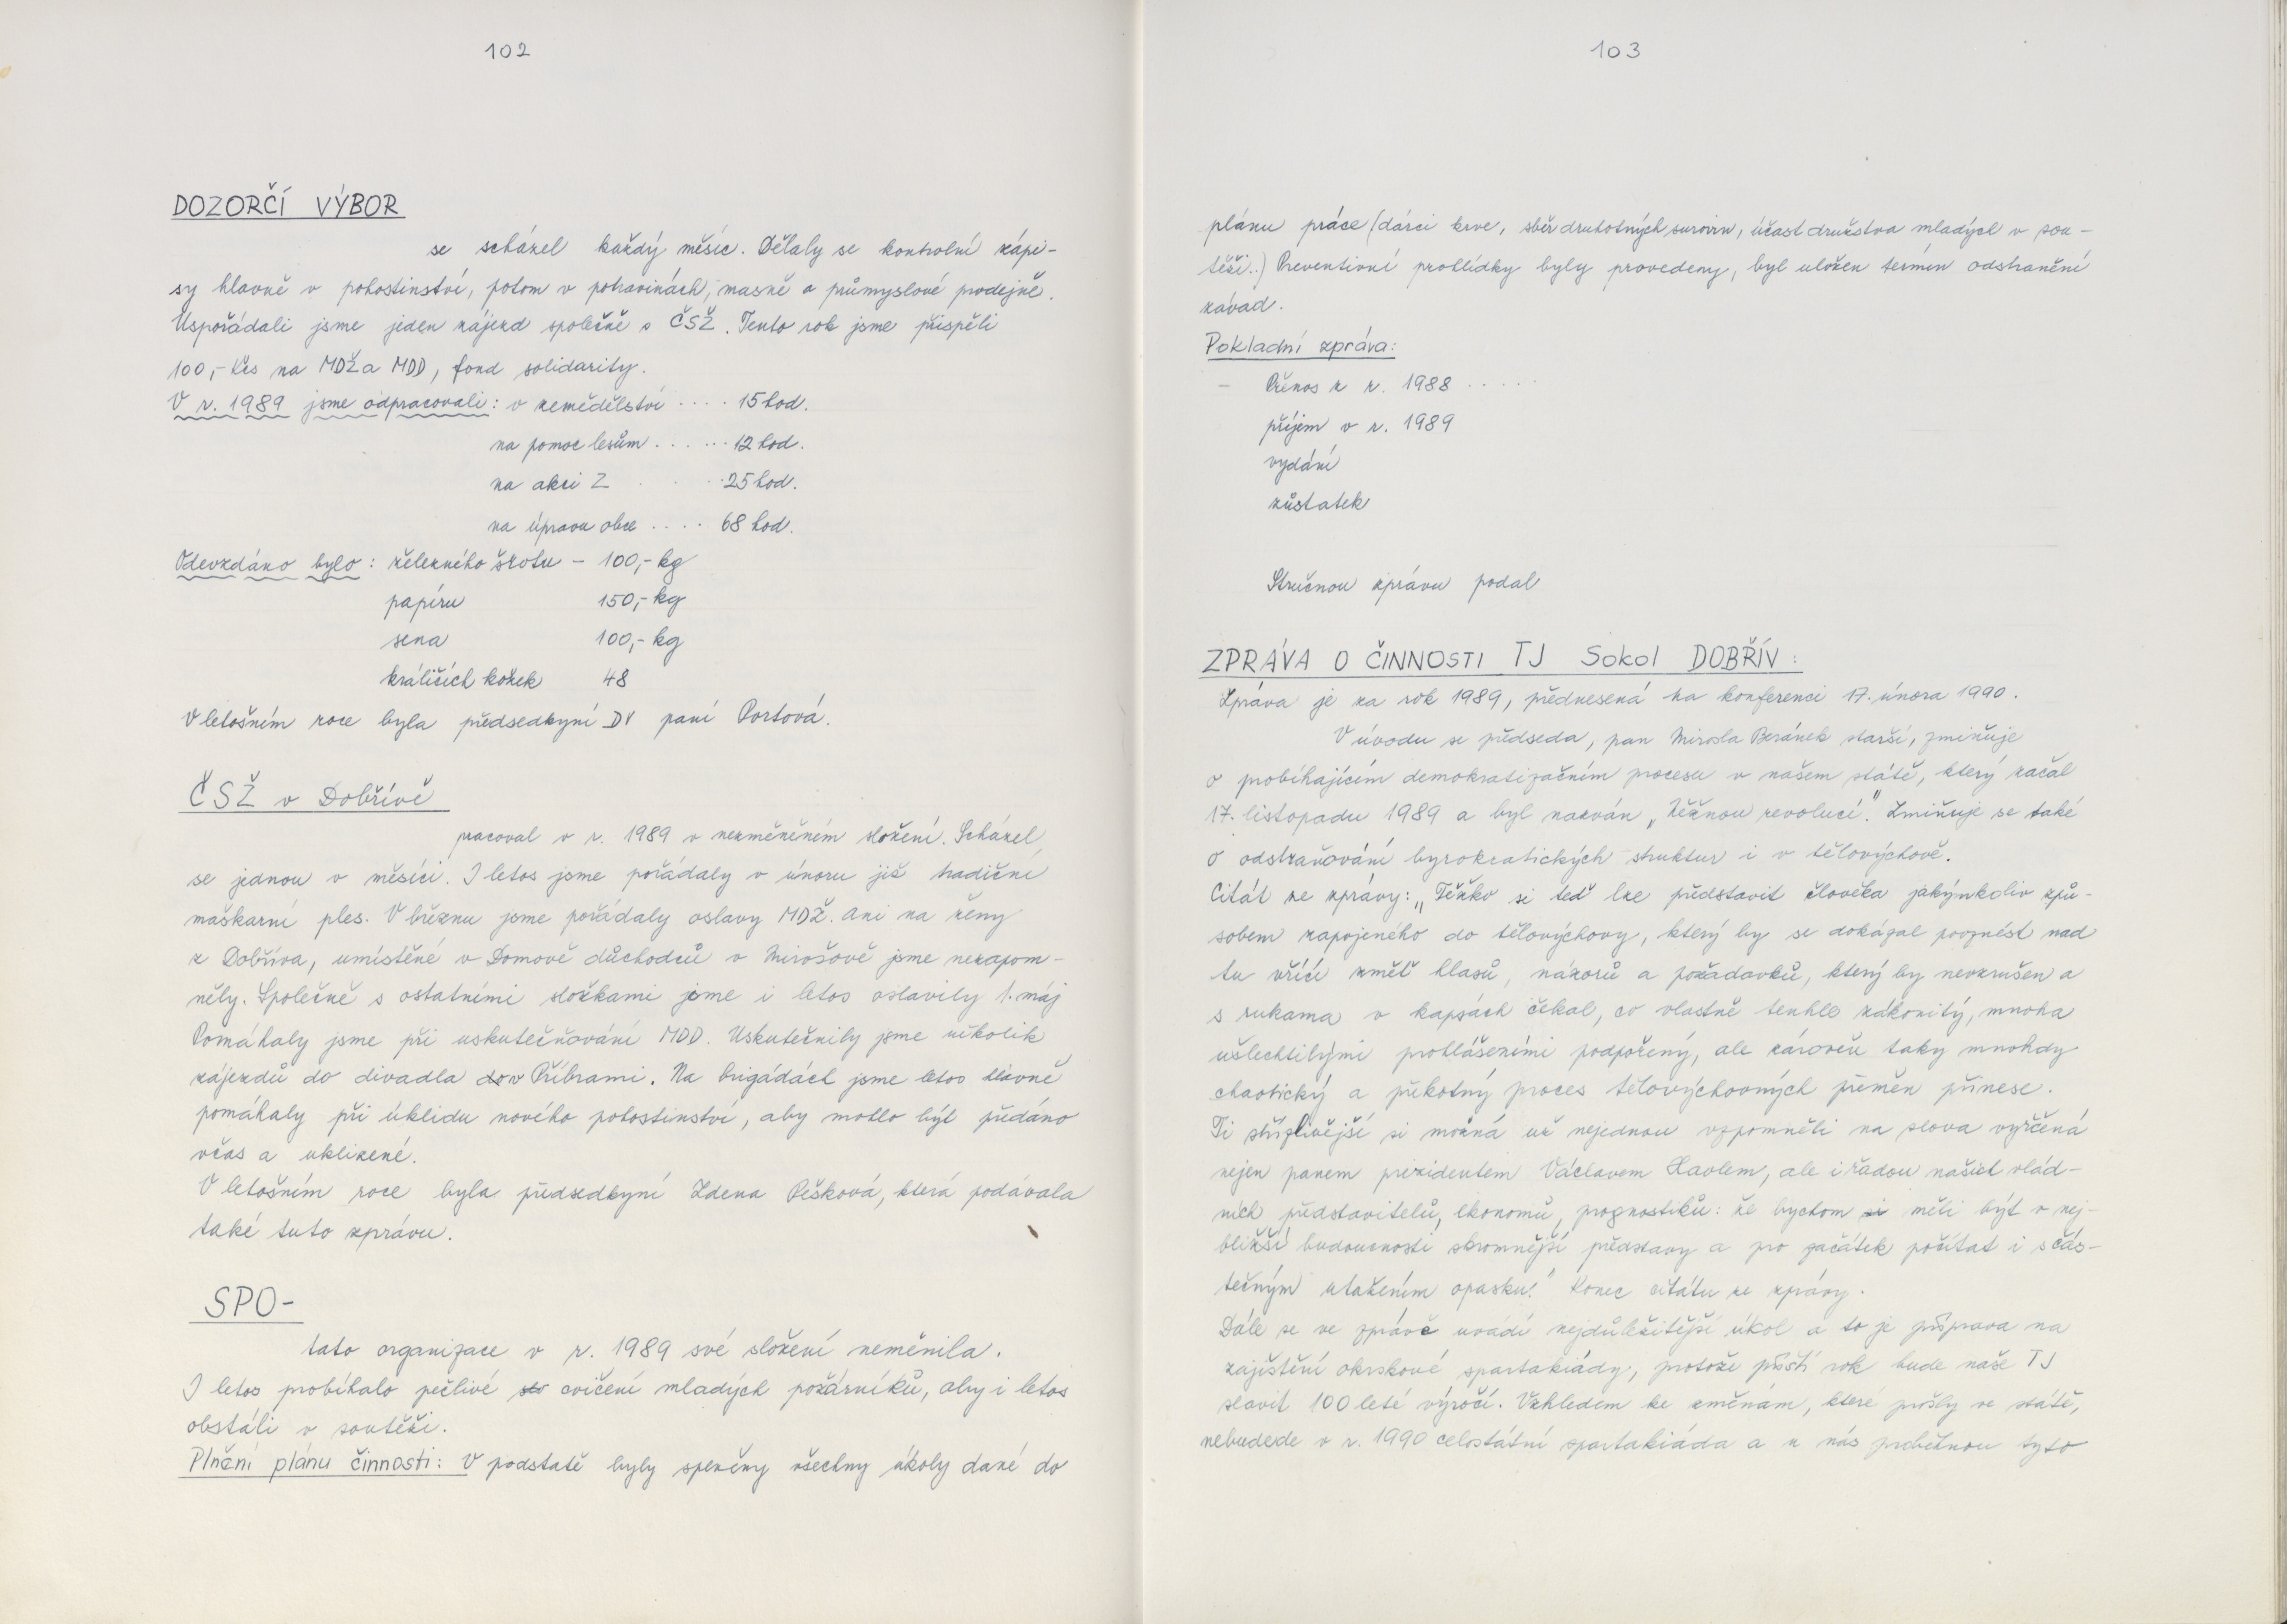 102
DOZORČÍ VÝBOR
se scházel každý měsíc. Dělaly se kontrolní zápi-
sy hlavně v pohostinství, potom v potravinách, masně a průmyslové prodejně.
Uspořádali jsme jeden zájezd společně s ČSŽ. Tento rok jsme přispěli
100,- Kčs na MDŽ a MDD, fond solidarity.
V r. 1989 jsme odpracovali: v zemědělství .... 15 hod.
na pomoc lesům ...... 12 hod.
na akci Z . . .. 25 hod.
na úpravu obce .... 68 hod.
Odevzdáno bylo: železného šrotu - 100,- kg
papíru 150,- kg
sena 100,- kg
králičích kožek 48
V letošním roce byla předsedkyní DV paní Portová.
ČSŽ v Dobřívě
pracoval v r. 1989 v nezměněném složení. Scházel
se jednou v měsíci. I letos jsme pořádaly v únoru již tradiční
maškarní ples. V březnu jsme pořádaly oslavy MDŽ. Ani na ženy
z Dobříva, umístěné v Domově důchodců v Mirošově jsme nezapom-
něly. Společně s ostatními složkami jsme i letos oslavily 1. máj
Pomáhaly jsme při uskutečňování MDD. Uskutečnily jsme několik
zájezdů do divadla do v Příbrami. Na brigádách jsme letos hlavně
pomáhaly při úklidu nového pohostinství, aby mohlo být předáno
včas a uklizené.
V letošním roce byla předsedkyní Zdena Pešková, která podávala
také tuto zprávu.
SPO-
tato organizace v r. 1989 své složení neměnila.
I letos probíhalo pečlivé cvičení mladých požárníků, aby i letos
obstáli v soutěži.
Plnění plánu činnosti: V podstatě byly splněny všechny úkoly dané do
103
plánu práce (dárci krve, sběr druhotných surovin, účast družstva mladých v sou-
těži..) Preventivní prohlídky byly provedeny, byl uložen termín odstranění
závad.
Pokladní zpráva:
- Přenos z r. 1988 .....
příjem v r. 1989
vydání
zůstatek
Stručnou zprávu podal
ZPRÁVA O ČINNOSTI TJ Sokol DOBŘÍV:
Zpráva je za rok 1989, přednesená na konferenci 17. února 1990.
V úvodu se předseda, pan Mirosla Beránek starší, zmiňuje
o probíhajícím demokratizačním procesu v našem státě, který začal
17. listopadu 1989 a byl nazván „Něžnou revolucí." Zmiňuje se také
o odstraňování byrokratických struktur i v tělovýchově.
Citát ze zprávy: „Těžko si teď lze představit člověka jakýmkoliv způ-
sobem zapojeného do tělovýchovy, který by se dokázal povznést nad
tu vřící změť hlasů, názorů a požadavků, který by nevzrušen a
s rukama v kapsách čekal, co vlastně tenhle zákonitý, mnoha
ušlechtilými prohlášeními podpořený, ale zároveň taky mnohdy
chaotický a překotný proces tělovýchovných přeměn přinese.
Ti střízlivější si možná už nejednou vzpomněli na slova vyřčená
nejen panem prezidentem Václavem Havlem, ale i řadou našich vlád-
ních představitelů, ekonomů, prognostiků: že bychom si měli být v nej-
bližší budoucnosti skromnější představy a pro začátek počítat i s čás-
tečným utažením opasku." Konec citátu ze zprávy.
Dále se ve zprávě uvádí nejdůležitější úkol a to je příprava na
zajištění okrskové spartakiády, protože příští rok bude naše TJ
slavit 100 leté výročí. Vzhledem ke změnám, které prošly ve státě,
nebudede v r. 1990 celostátní spartakiáda a u nás proběhnou tyto